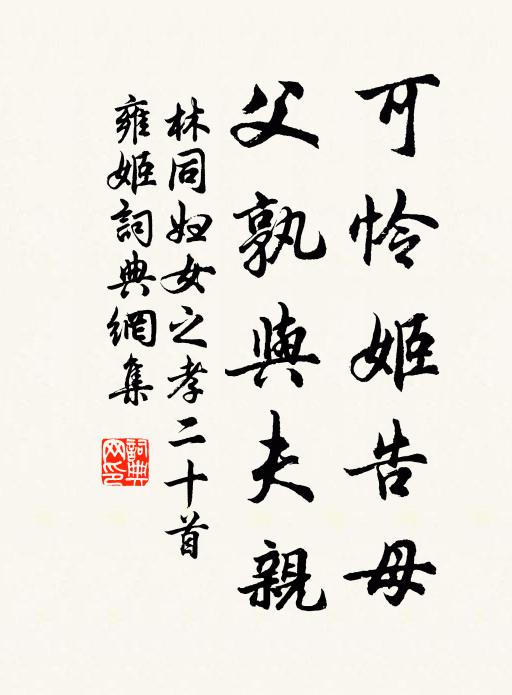 可怜姬告母
父孰與夫親
林同妇女之孝二十首
雍姬詞典網集
詞典網印